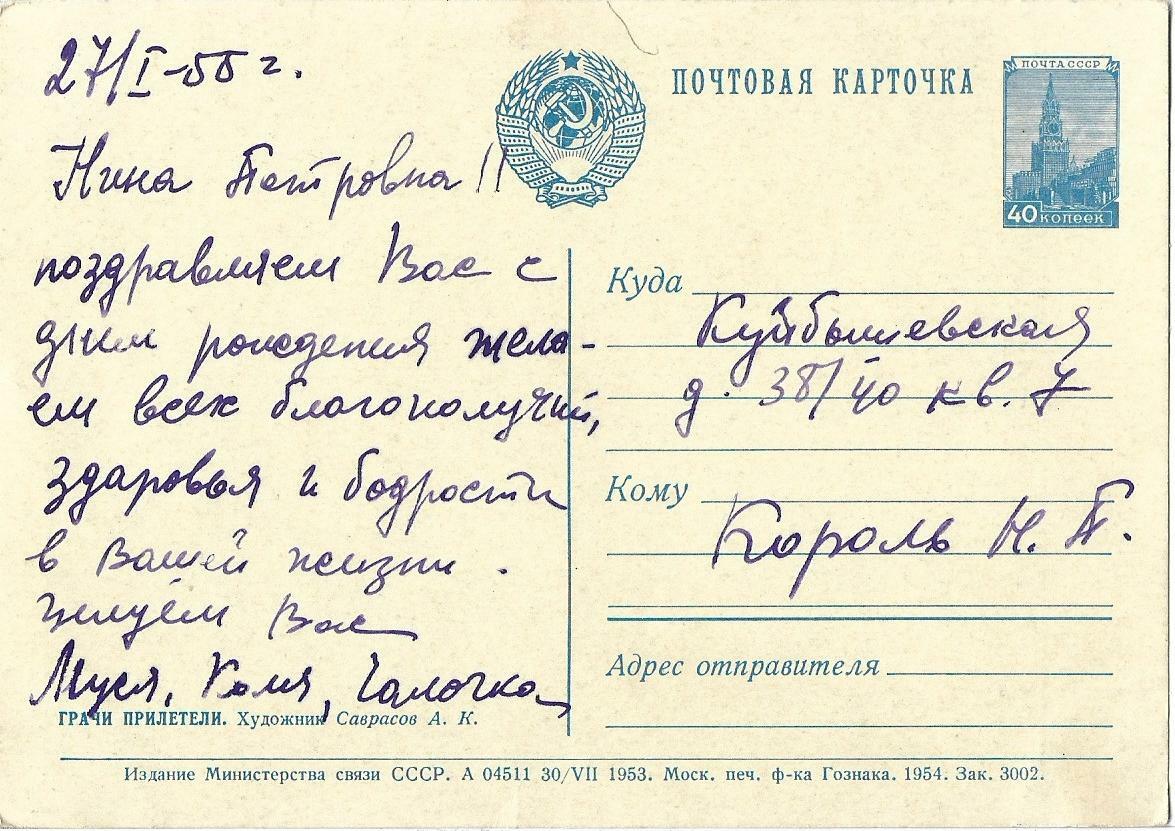 27/I-55 г.
Нина Петровна!!
поздравляем Вас с
днем рождения жела-
ем всех благополучий,
здоровья и бодрости
в Вашей жизни.
Целуем Вас
Муся, Коля, Галочка
ГРАЧИ ПРИЛЕТЕЛИ. Художник Саврасов А. К.
ПОЧТОВАЯ КАРТОЧКА
ПОЧТА СССР
40 КОПЕЕК
Куда
Куйбышевская
д. 38/40 кв. 7
Кому
Король Н. П.
Адрес отправителя
Издание Министерства связи СССР. А 04511 30/VII 1953. Моск. печ. ф-ка Гознака. 1954. Зак. 3002.